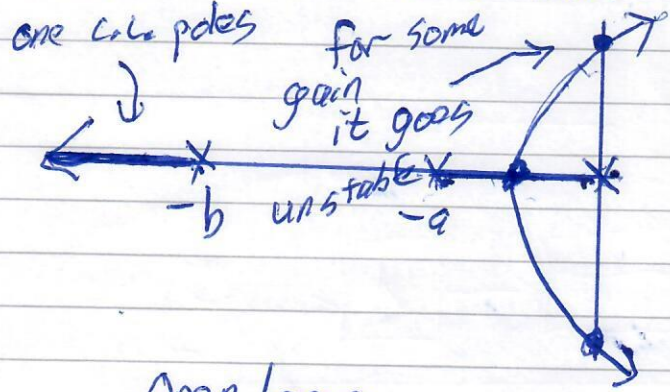 one c.l. poles
for some
gain
it goes
unstable
-b
-a